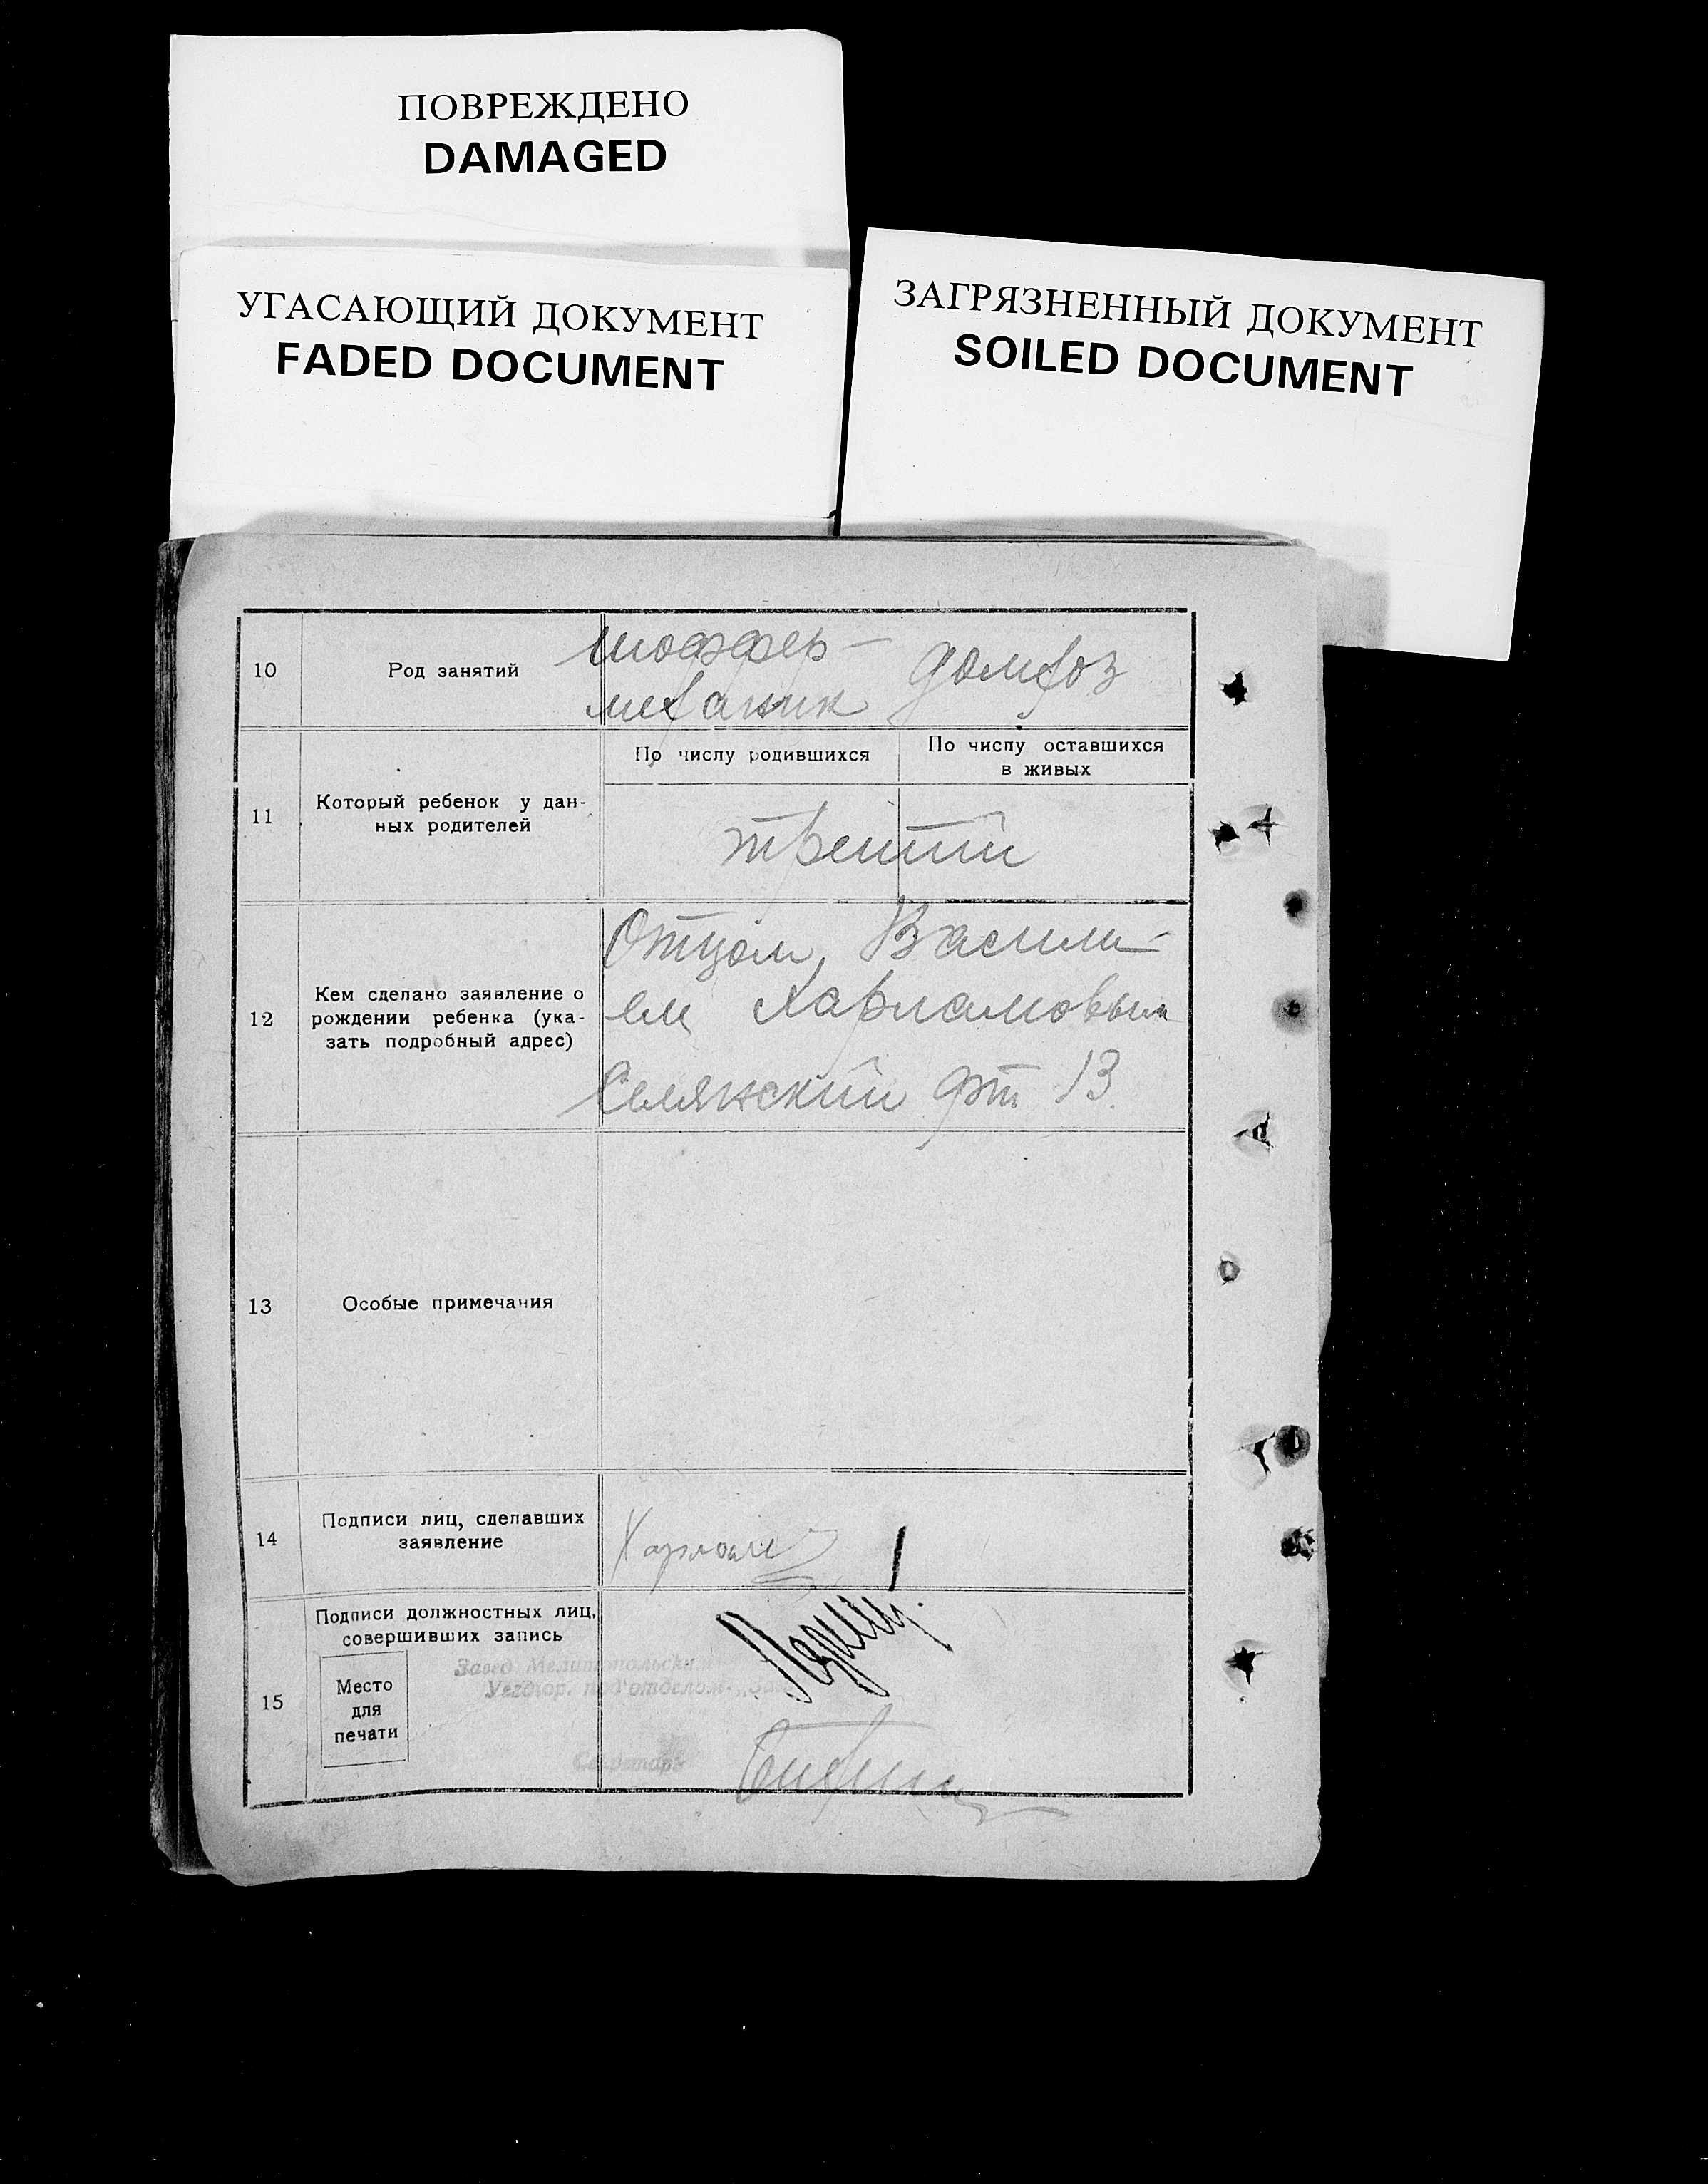 ПОВРЕЖДЕНО
DAMAGED
УГАСАЮЩИЙ ДОКУМЕНТ
FADED DOCUMENT
ЗАГРЯЗНЕННЫЙ ДОКУМЕНТ
SOILED DOCUMENT
10 Род занятий
шоффер-
механик
домхоз
11 Который ребенок у дан-
ных родителей
По числу родившихся
По числу оставшихся
в живых
третий
12 Кем сделано заявление о
рождении ребенка (ука-
зать подробный адрес)
Отцом Васили-
ем Харламовым
Селянский 13
13 Особые примечания
14 Подписи лиц, сделавших
заявление
Харлам
15 Подписи должностных лиц,
совершивших запись
Место
для
печати
Завед Мелитопольским
Секретарь